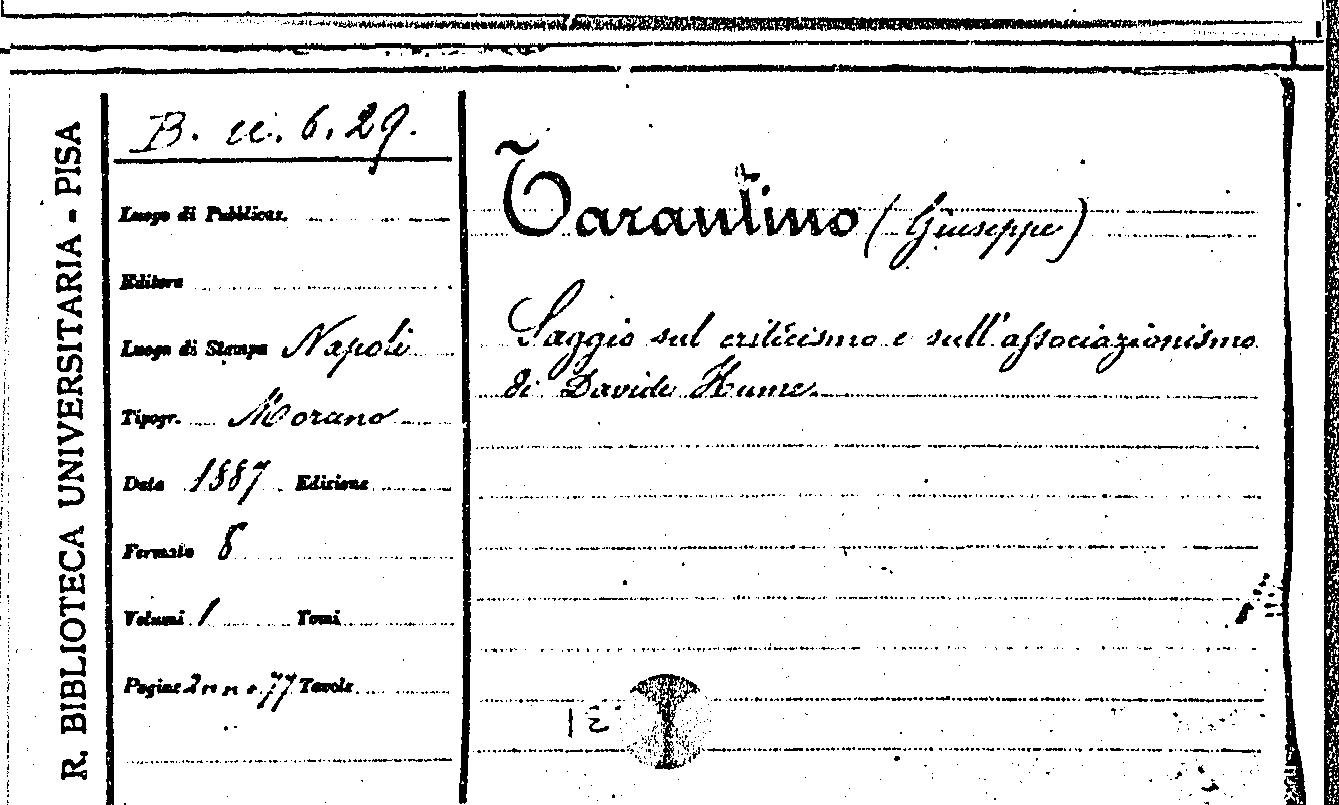 R. BIBLIOTECA UNIVERSITARIA - PISA
B. cc. 6. 29.
Luogo di Pubblicaz.
Editore
Luogo di Stampa Napoli
Tipogr. Morano
Data 1887 Edizione
Formato 8
Volumi 1 Tomi
Pagine 77 Tavole
Tarantino (Giuseppe)
Saggio sul criticismo e sull'associazionismo
di Davide Hume.